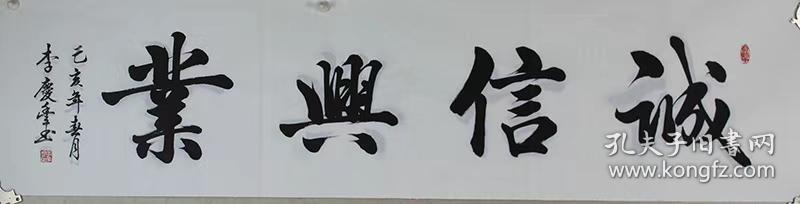 誠信興業
己亥年春月
李慶豐书
孔夫子旧书网
www.kongfz.com